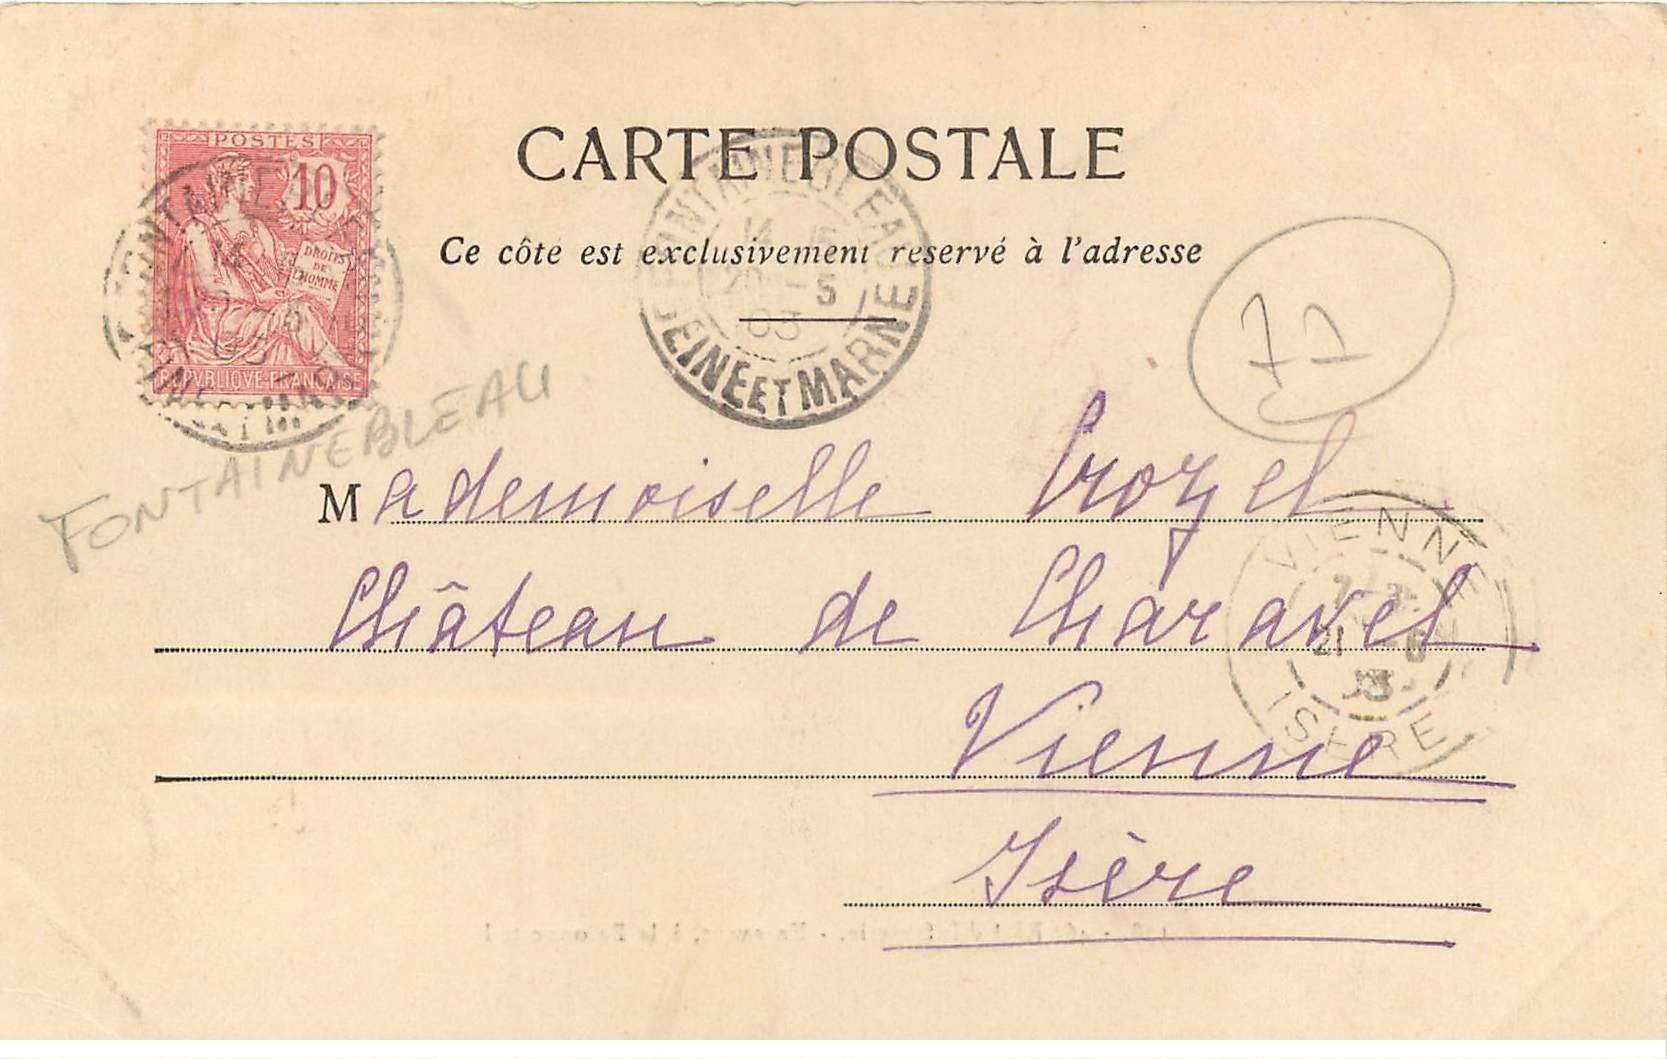 POSTES
10
DROITS
DE
L'HOMME
REPVBLIQVE FRANÇAISE
CARTE POSTALE
Ce côté est exclusivement reservé à l'adresse
FONTAINEBLEAU
20 - 5
03
SEINE ET MARNE
FONTAINEBLEAU
Mademoiselle Crozel
Château de Charavel
Vienne
Isère
VIENNE
21 - 5
03
ISERE